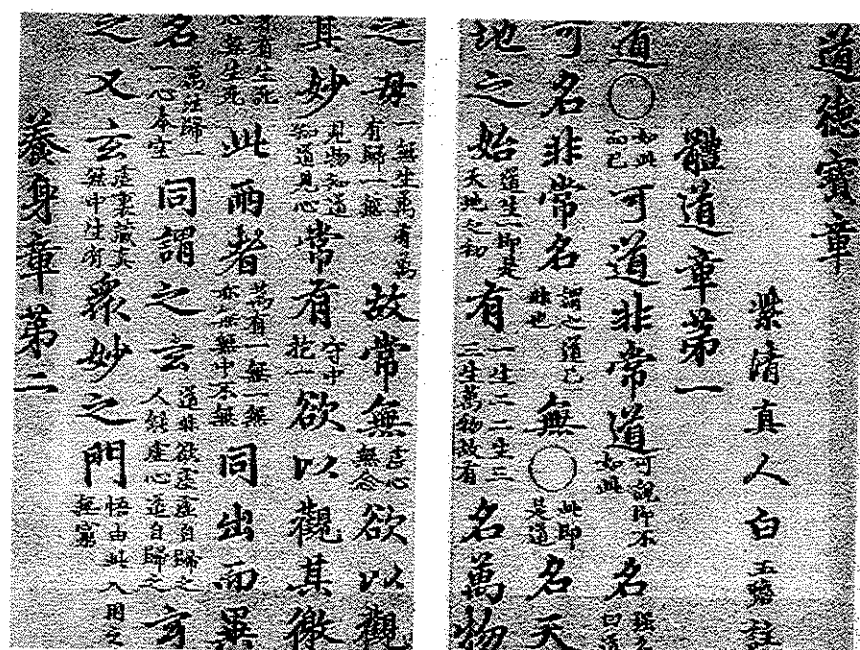 道德寶章
紫清真人白玉蟾註
體道章第一
道〇如此而已可道非常道可說即不如此名強名曰道
可名非常名謂之道已非也無〇此即是道名天
地之始道生一即是天地之初有一生二二生三三生萬物故有名萬物
之母一無生萬有萬有歸一無故常無虛心無念欲以觀
其妙見物知道知道見心常有守中抱一欲以觀其徼
有生死心無生死此兩者萬有一無一無亦無無中不無同出而異
名萬法歸一一心本空同謂之玄道非欲虛虛自歸之人能虛心道自歸之玄
之又玄虛裏藏真無中生有眾妙之門悟由此入用之無窮
養身章第二